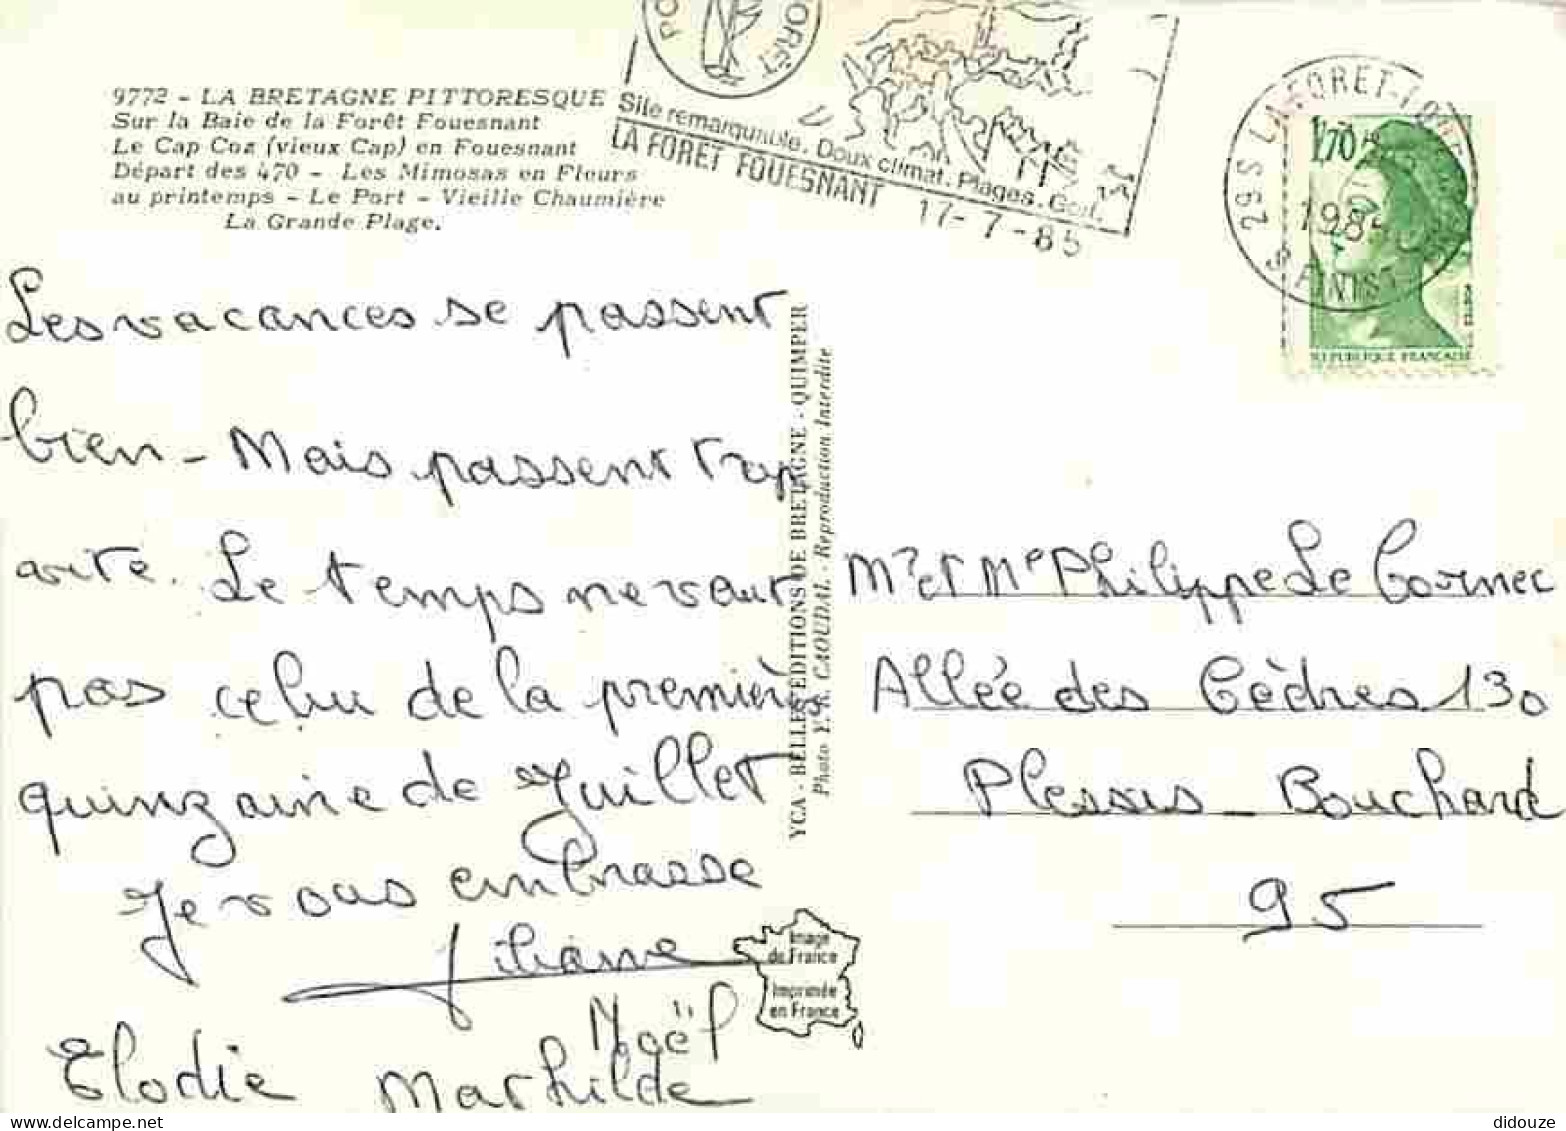 9772 - LA BRETAGNE PITTORESQUE
Sur la Baie de la Forêt Fouesnant
Le Cap Coz (vieux Cap) en Fouesnant
Départ des 470 - Les Mimosas en Fleurs
au printemps - Le Port - Vieille Chaumière
La Grande Plage.
FORÊT
Site remarquable. Doux climat. Plages. Golf.
LA FORET FOUESNANT
17-7-85
29S LA FORET-FOUE
1985
FINIST
1,70
REPUBLIQUE FRANÇAISE
Les vacances se passent
bien - Mais passent trop
vite. Le temps ne vaut
pas celui de la première
quinzaine de Juillet
Je vous embrasse
Liliane
Noël
Elodie Mathilde
YCA - BELLES EDITIONS DE BRETAGNE - QUIMPER
Photo Y. R. CAOUDAL - Reproduction Interdite
Image
de France
Imprimée
en France
Mr et Me Philippe Le Cornec
Allée des Cèdres 130
Plessis - Bouchard
95
didouze